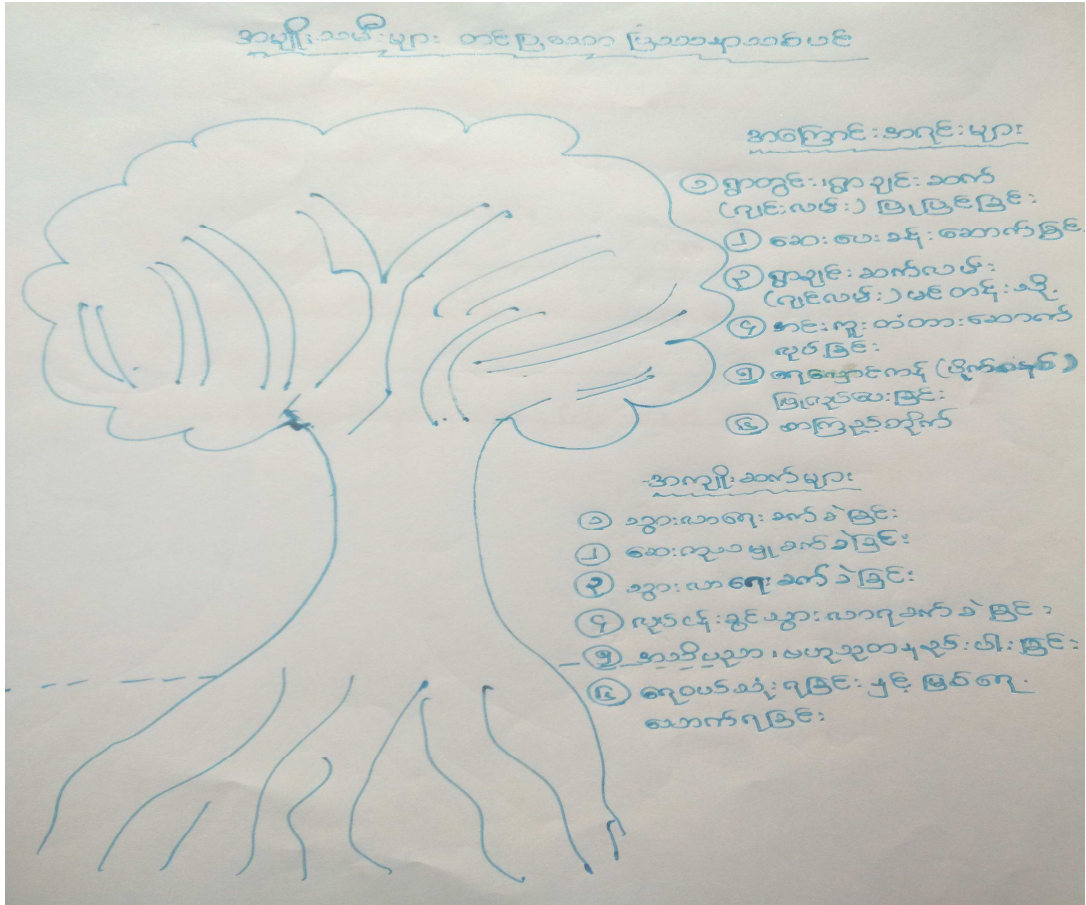 အမျိုးသမီးများ တင်ပြသော ပြဿနာသစ်ပင်
အကြောင်းအရင်းများ
၁ ရွာတွင်း၊ ရွာချင်းဆက်
(ကွင်းလမ်း) ပြုပြင်ခြင်း
၂ ဆေးပေးခန်းဆောက်ခြင်း
၃ ရွာချင်းဆက်လမ်း
(ကွင်းလမ်း) မင်တန်းသို့
၄ ကူးတံတားဆောက်
လုပ်ခြင်း
၅
ပြုလုပ်ပေးခြင်း
၆ စာကြည့်တိုက်
အကျိုးဆက်များ
၁ သွားလာရေးခက်ခဲခြင်း
၂ ဆေးကုသမှုခက်ခဲခြင်း
၃ သွားလာရေးခက်ခဲခြင်း
၄ လုပ်ငန်းခွင်သွားလာရခက်ခဲခြင်း
၅ အသိပညာ၊ ဗဟုသုတနည်းပါးခြင်း
၆ ရေဝယ်သုံးရခြင်းနှင့် မြစ်ရေ
သောက်ရခြင်း